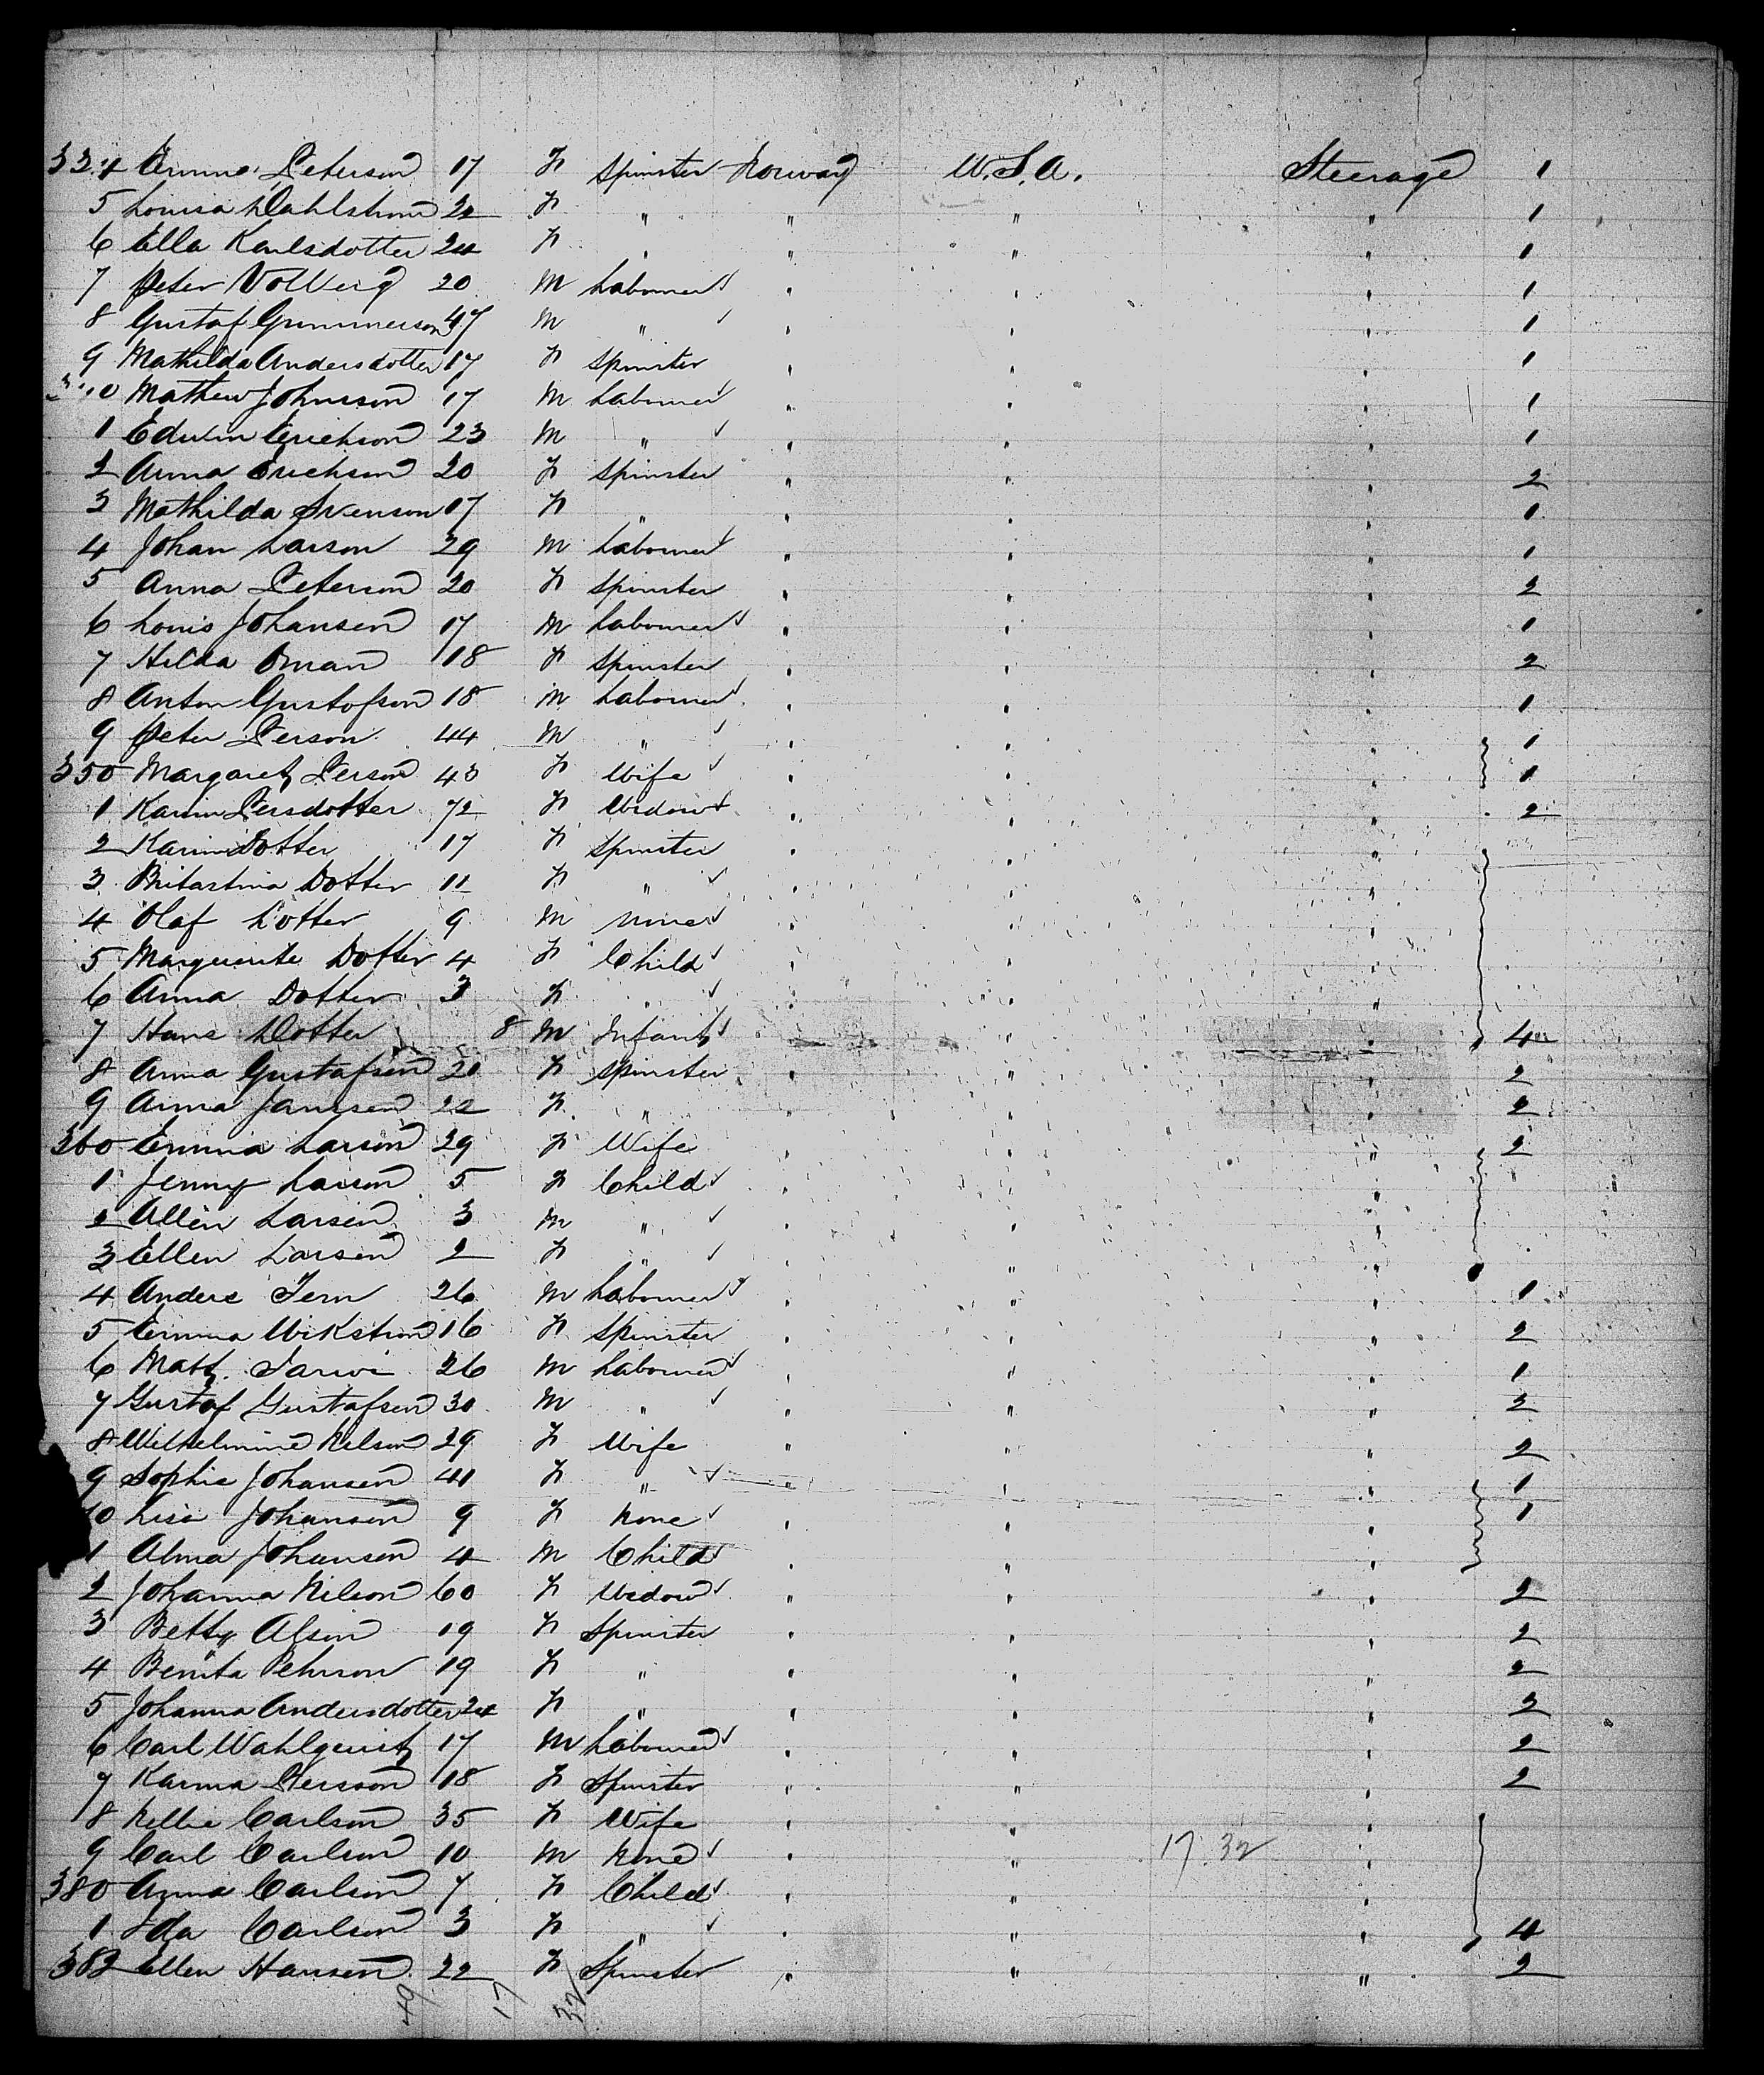 334 Emma Peterson 17 F Spinster Norway U.S.A. Steerage 1
5 Louisa Dahlstrom 22 F " " " " 1
6 Ella Karlsdotter 24 F " " " " 1
7 Peter Vollberg 20 M Labourer " " " 1
8 Gustaf Gummerson 47 M " " " " 1
9 Mathilda Andersdotter 17 F Spinster " " " 1
340 Mathew Johnsson 17 M Labourer " " " 1
1 Edwin Erickson 23 M " " " " 1
2 Anna Erickson 20 F Spinster " " " 2
3 Mathilda Svenson 17 F " " " " 1
4 Johan Larson 29 M Labourer " " " 1
5 Anna Peterson 20 F Spinster " " " 2
6 Louis Johansen 17 M Labourer " " " 1
7 Hilda Oman 18 F Spinster " " " 2
8 Anton Gustofson 18 M Labourer " " " 1
9 Peter Person 44 M " " " " 1
350 Margaret Person 43 F Wife " " " 1
1 Karin Persdotter 72 F Widow " " " 2
2 Karin Dotter 17 F Spinster " " "
3 Britastina Dotter 11 F " " " "
4 Olaf Dotter 9 M None " " "
5 Marguerite Dotter 4 F Child " " "
6 Anna Dotter 3 F " " " "
7 Hans Dotter 8 M Infant " " " 4
8 Anna Gustafson 20 F Spinster " " " 2
9 Anna Janssen 22 F " " " " 2
360 Emma Larson 29 F Wife " " " 2
1 Jenny Larson 5 F Child " " "
2 Allen Larsen 3 M " " " "
3 Ellen Larsen 2 F " " " "
4 Anders Fern 26 M Labourer " " " 1
5 Emma Wikstrom 16 F Spinster " " " 2
6 Matt. Jarvi 26 M Labourer " " " 1
7 Gustaf Gustafsen 30 M " " " " 2
8 Wilhelmine Nelson 29 F Wife " " " 2
9 Sophie Johansen 41 F " " " " 1
70 Lise Johanson 9 F None " " " 1
1 Alma Johanson 4 M Child " " "
2 Johanna Nilson 60 F Widow " " " 2
3 Betty Alsin 19 F Spinster " " " 2
4 Benita Pehrson 19 F " " " " 2
5 Johanna Andersdotter 24 F " " " " 2
6 Carl Wahlquist 17 M Labourer " " " 2
7 Karina Persson 18 F Spinster " " " 2
8 Nellie Carlson 35 F Wife " " "
9 Carl Carlson 10 M None " " 17.32 "
380 Anna Carlson 7 F Child " " "
1 Ida Carlson 3 F " " " " 4
382 Ellen Hansen 22 F Spinster " " " 2
49 17 32